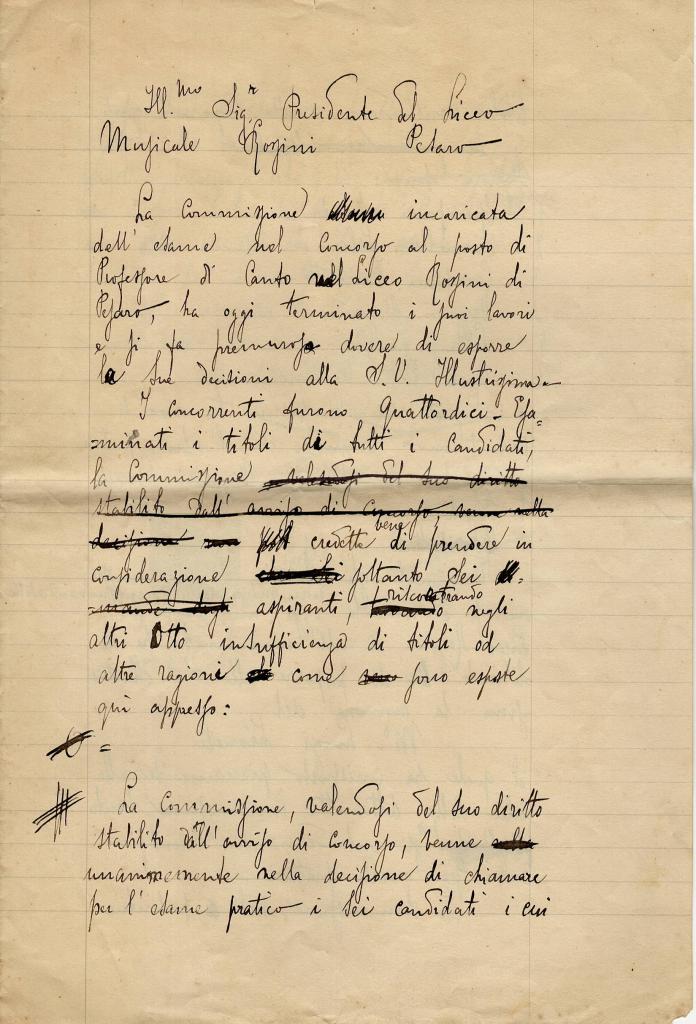 Ill.mo Sig.r Presidente del Liceo
Musicale Rossini Pesaro
La Commissione incaricata
dell'esame nel Concorso al posto di
Professore di Canto nel Liceo Rossini di
Pesaro, ha oggi terminato i suoi lavori
e si fa premuroso dovere di esporre
le sue decisioni alla S. V. Illustrissima.
I concorrenti furono Quattordici. Esa=
=minati i titoli di tutti i Candidati,
la Commissione valendosi del suo diritto
stabilito dall'avviso di Concorso, venne nella
decisione credette bene di prendere in
considerazione soltanto Sei
aspiranti, riscontrando negli
altri Otto insufficienza di titoli od
altre ragioni come sono esposte
qui appresso:
=
La Commissione, valendosi del suo diritto
stabilito dall'avviso di Concorso, venne nella
unanimemente nella decisione di chiamare
per l'esame pratico i Sei candidati i cui